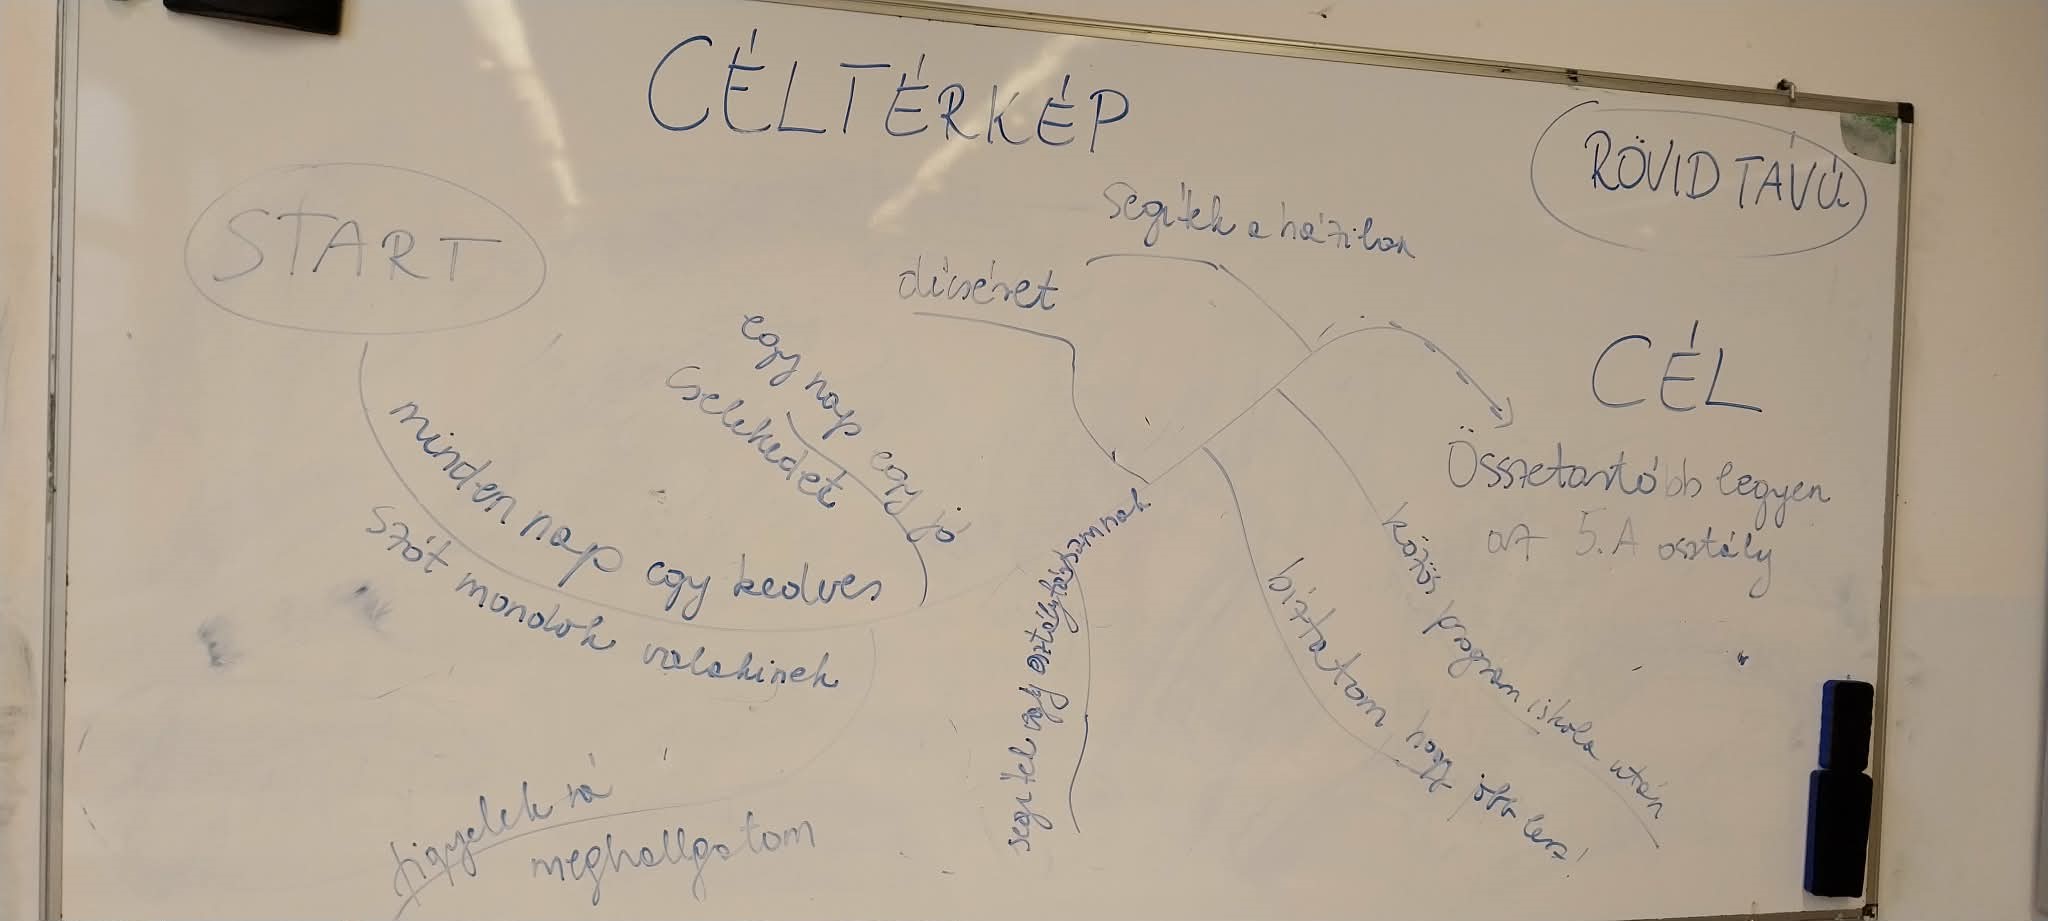 CÉLTÉRKÉP
RÖVID TÁVÚ
START
segítek a háziban
dícséret
egy nap egy jó
cselekedet
CÉL
Összetartóbb legyen
az 5.A osztály
minden nap egy kedves
szót mondok valakinek
segítek egy osztálytársamnak
közös program iskola után
bíztatom hogy jobb lesz!
figyelek rá
meghallgatom